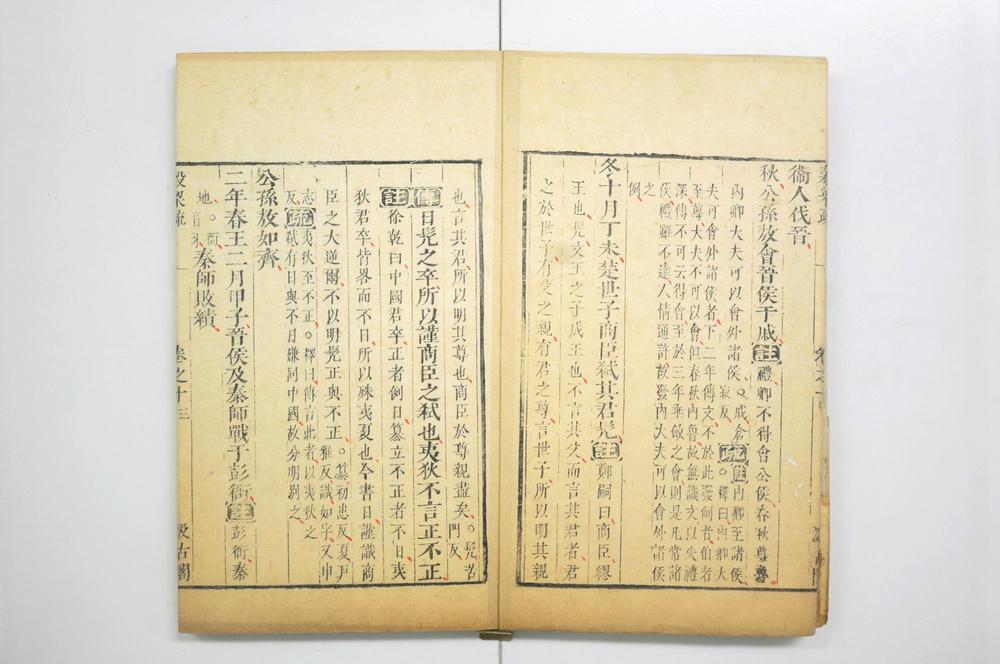 衞人伐晉
秋公孫敖會晉侯于戚註禮卿不得會公侯春秋尊魯
內卿大夫可以會外諸侯○戚倉
寂反疏註內卿至諸侯○釋曰內卿大
夫可會外諸侯者下二年傳文不於此發例者伯者
至尊大夫不可以會但春秋內魯故無譏文以失禮
深傳不可云得會至於三年垂斂之會則是凡常諸
侯禮雖不達人情通許故發內大夫可以會外諸侯
之
例
冬十月丁未楚世子商臣弒其君髡註鄭嗣曰商臣繆
王也髡文王之子成王也不言其父而言其君者君
之於世子有父之親有君之尊言世子所以明其親
也言其君所以明其尊也商臣於尊親盡矣○髡苦
門反
傳日髡之卒所以謹商臣之弒也夷狄不言正不正
註徐乾曰中國君卒正者例日篡立不正者不日夷
狄君卒皆畧而不日所以殊夷夏也今書日謹識商
臣之大逆爾不以明髡正與不正○篡初患反夏戶
雅反識如字又申
志反疏夷狄至不正○釋曰傳言此者以夷狄之
弒有日與不日嫌同中國故分明別之
公孫敖如齊
二年春王二月甲子晉侯及秦師戰于彭衙註彭衙秦
地○衙
音牙秦師敗績
穀梁疏
卷之十三
汲古閣